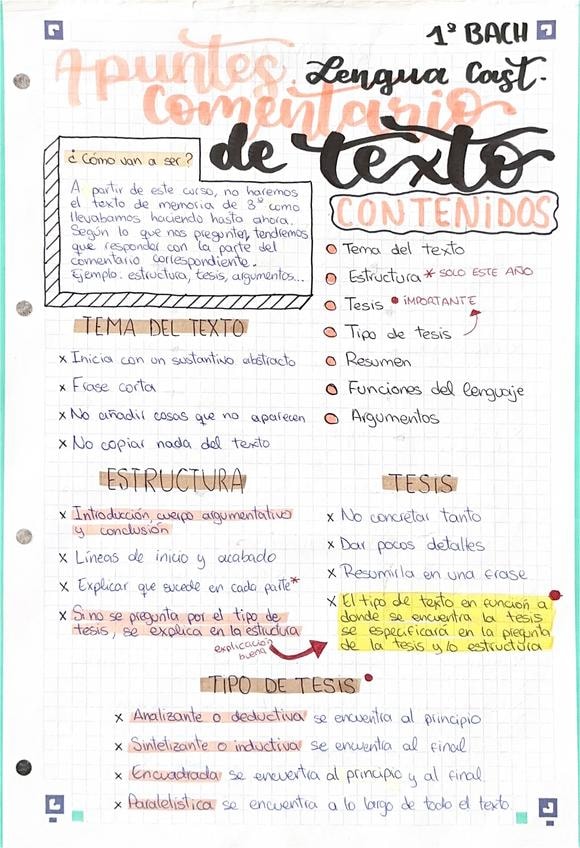 1º BACH
Lengua Cast.
Apuntes
Comentario
de texto
¿Cómo van a ser?
A partir de este curso, no haremos
el texto de memoria de 3º como
llevabamos haciendo hasta ahora.
Según lo que nos pregunten, tendremos
que responder con la parte del
comentario correspondiente.
Ejemplo: estructura, tesis, argumentos...
CONTENIDOS
Tema del texto
Estructura * SOLO ESTE AÑO
Tesis • IMPORTANTE
Tipo de tesis
Resumen
Funciones del lenguaje
Argumentos
TEMA DEL TEXTO
x Inicia con un sustantivo abstracto
x Frase corta
x No añadir cosas que no aparecen
x No copiar nada del texto
ESTRUCTURA
x Introducción, cuerpo argumentativo
y conclusión
x Líneas de inicio y acabado
x Explicar que sucede en cada parte*
x Si no se pregunta por el tipo de
tesis, se explica en la estructura
explicación
buena
TESIS
x No concretar tanto
x Dar pocos detalles
x Resumirla en una frase
x El tipo de texto en función a
donde se encuentra la tesis
se especificará en la pregunta
de la tesis y/o estructura
TIPO DE TESIS
x Analizante o deductiva se encuentra al principio
x Sintetizante o inductiva se encuentra al final
x Encuadrada se encuentra al principio y al final
x Paralelística se encuentra a lo largo de todo el texto